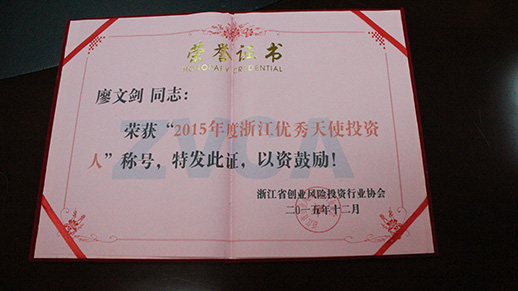 荣誉证书
HONORARY CREDENTIAL
廖文剑 同志：
荣获“2015年度浙江优秀天使投资
人”称号，特发此证，以资鼓励！
ZVCA
浙江省创业风险投资行业协会
二〇一五年十二月